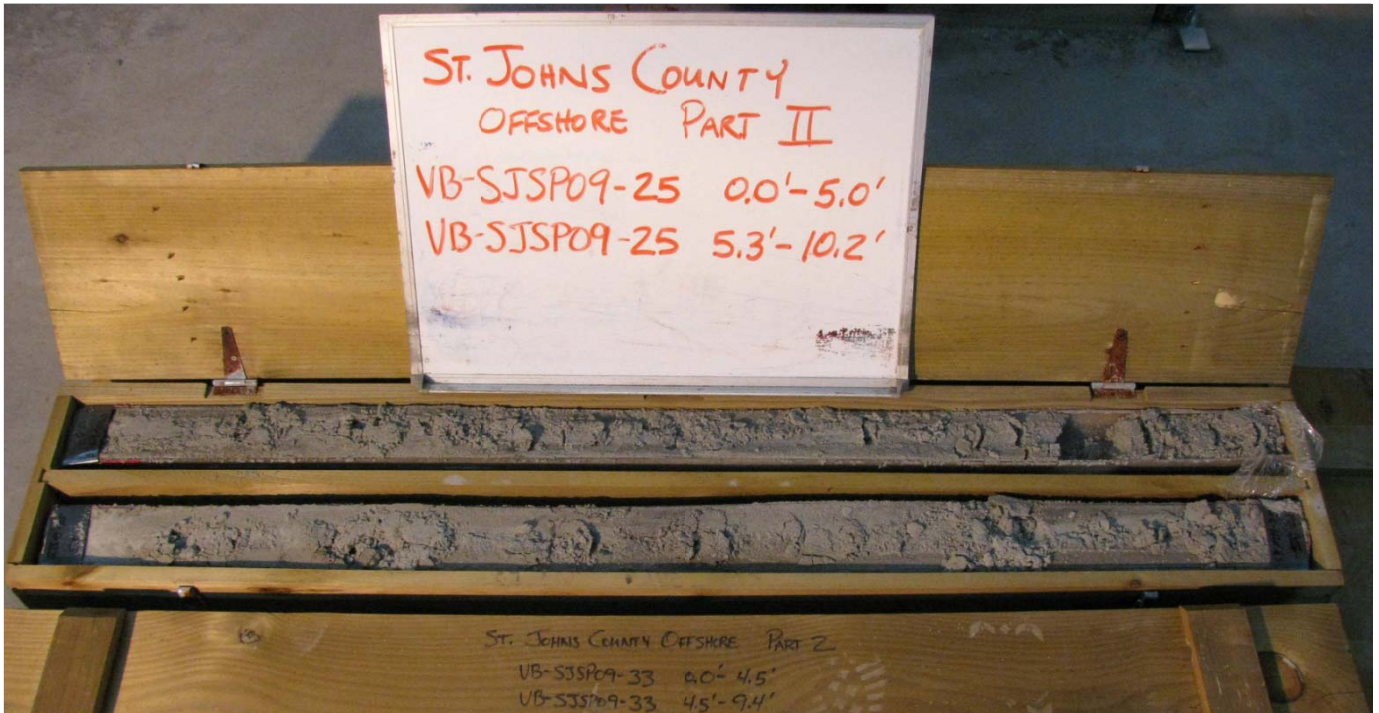 ST. JOHNS COUNTY
OFFSHORE PART II
VB-SJSP09-25 0.0'-5.0'
VB-SJSP09-25 5.3'-10.2'
ST. JOHNS COUNTY OFFSHORE PART 2
VB-SJSP09-33 0.0'-4.5'
VB-SJSP09-33 4.5'-9.4'